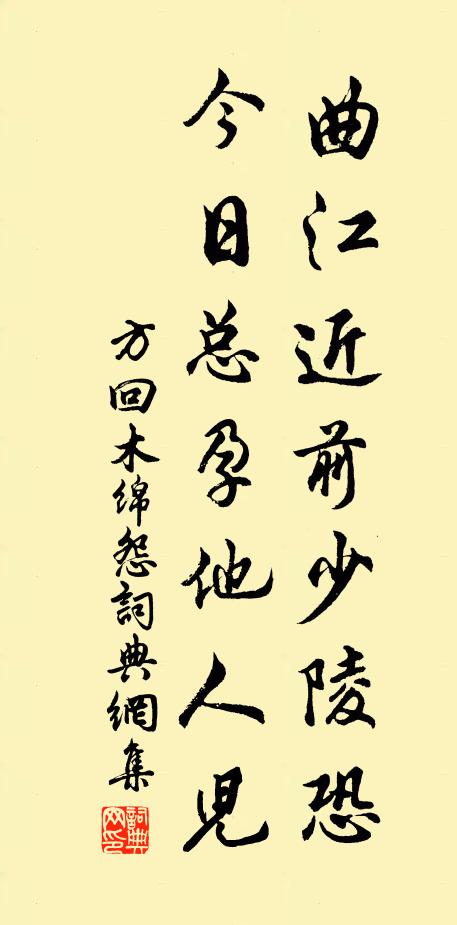 曲江近前少陵恐
今日总孕他人児
方回木绵怨詞典網集
詞典网印